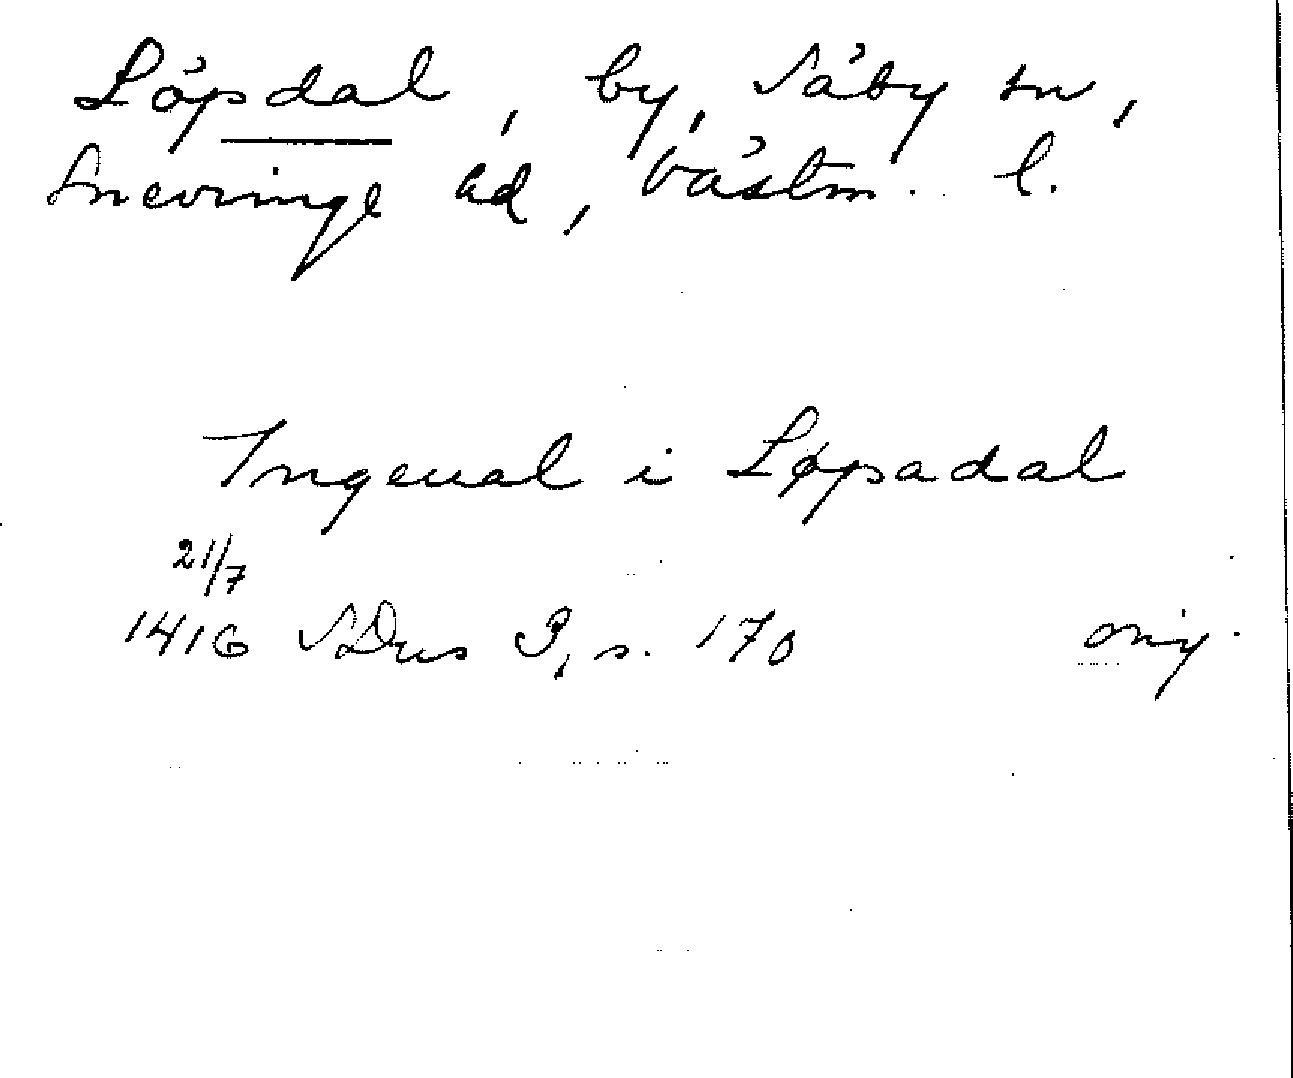 Löpdal, by, Säby sn,
Snevringe hd, Västm. l.
Ingeual i Løpadal
21/7
1416 SDns 3, s. 170 orig.